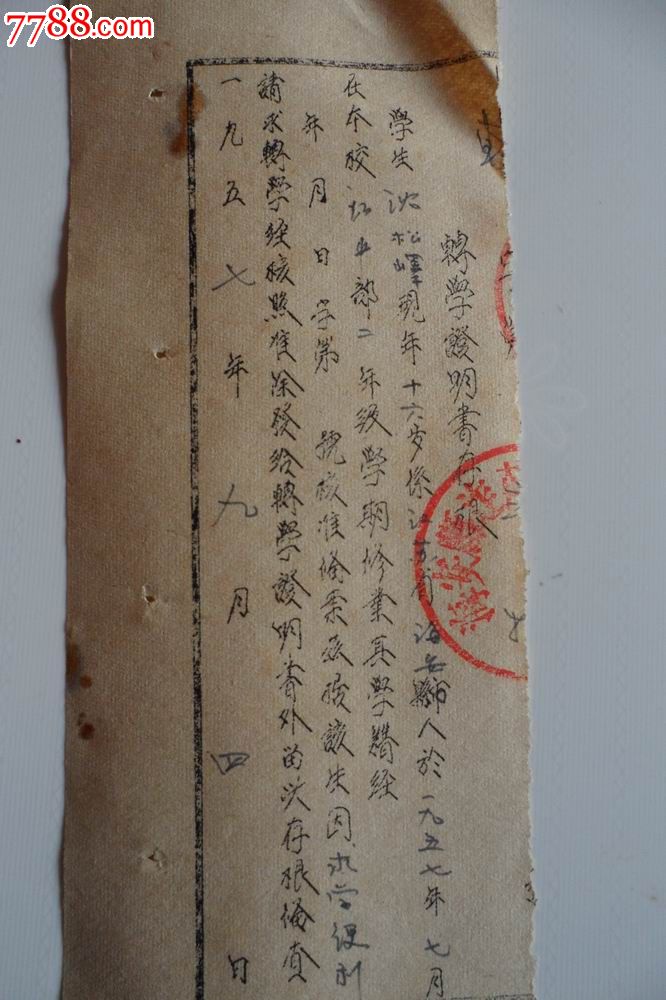 7788.com
轉學證明書存根
學生沈松嶧現年十六岁係江苏省海安縣人於一九五七年七月
在本校初中部二年级學期修業其學籍经
年月日字第號核准備案兹據該生因求学便利
請求轉學经核照准除發给轉學證明書外苗以存根備查
一九五七年九月四日